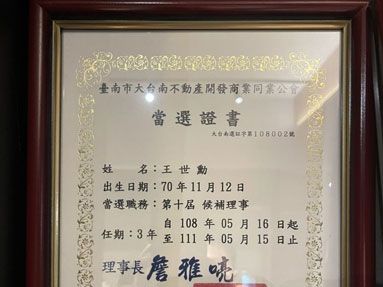 臺南市大台南不動產開發商業同業公會
當選證書
大台南選証字第108002號
姓名:王世勳
出生日期:70年11月12日
當選職務:第十屆 候補理事
任期:3年 自 108 年 05 月 16 日起
至 111 年 05 月 15 日止
理事長 詹雅喨